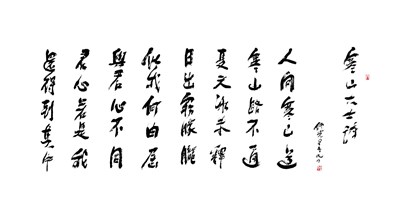 寒山大士詩
人問寒山道
寒山路不通
夏天冰未釋
日出霧朦朧
似我何由屆
與君心不同
君心若是我
還得到其中